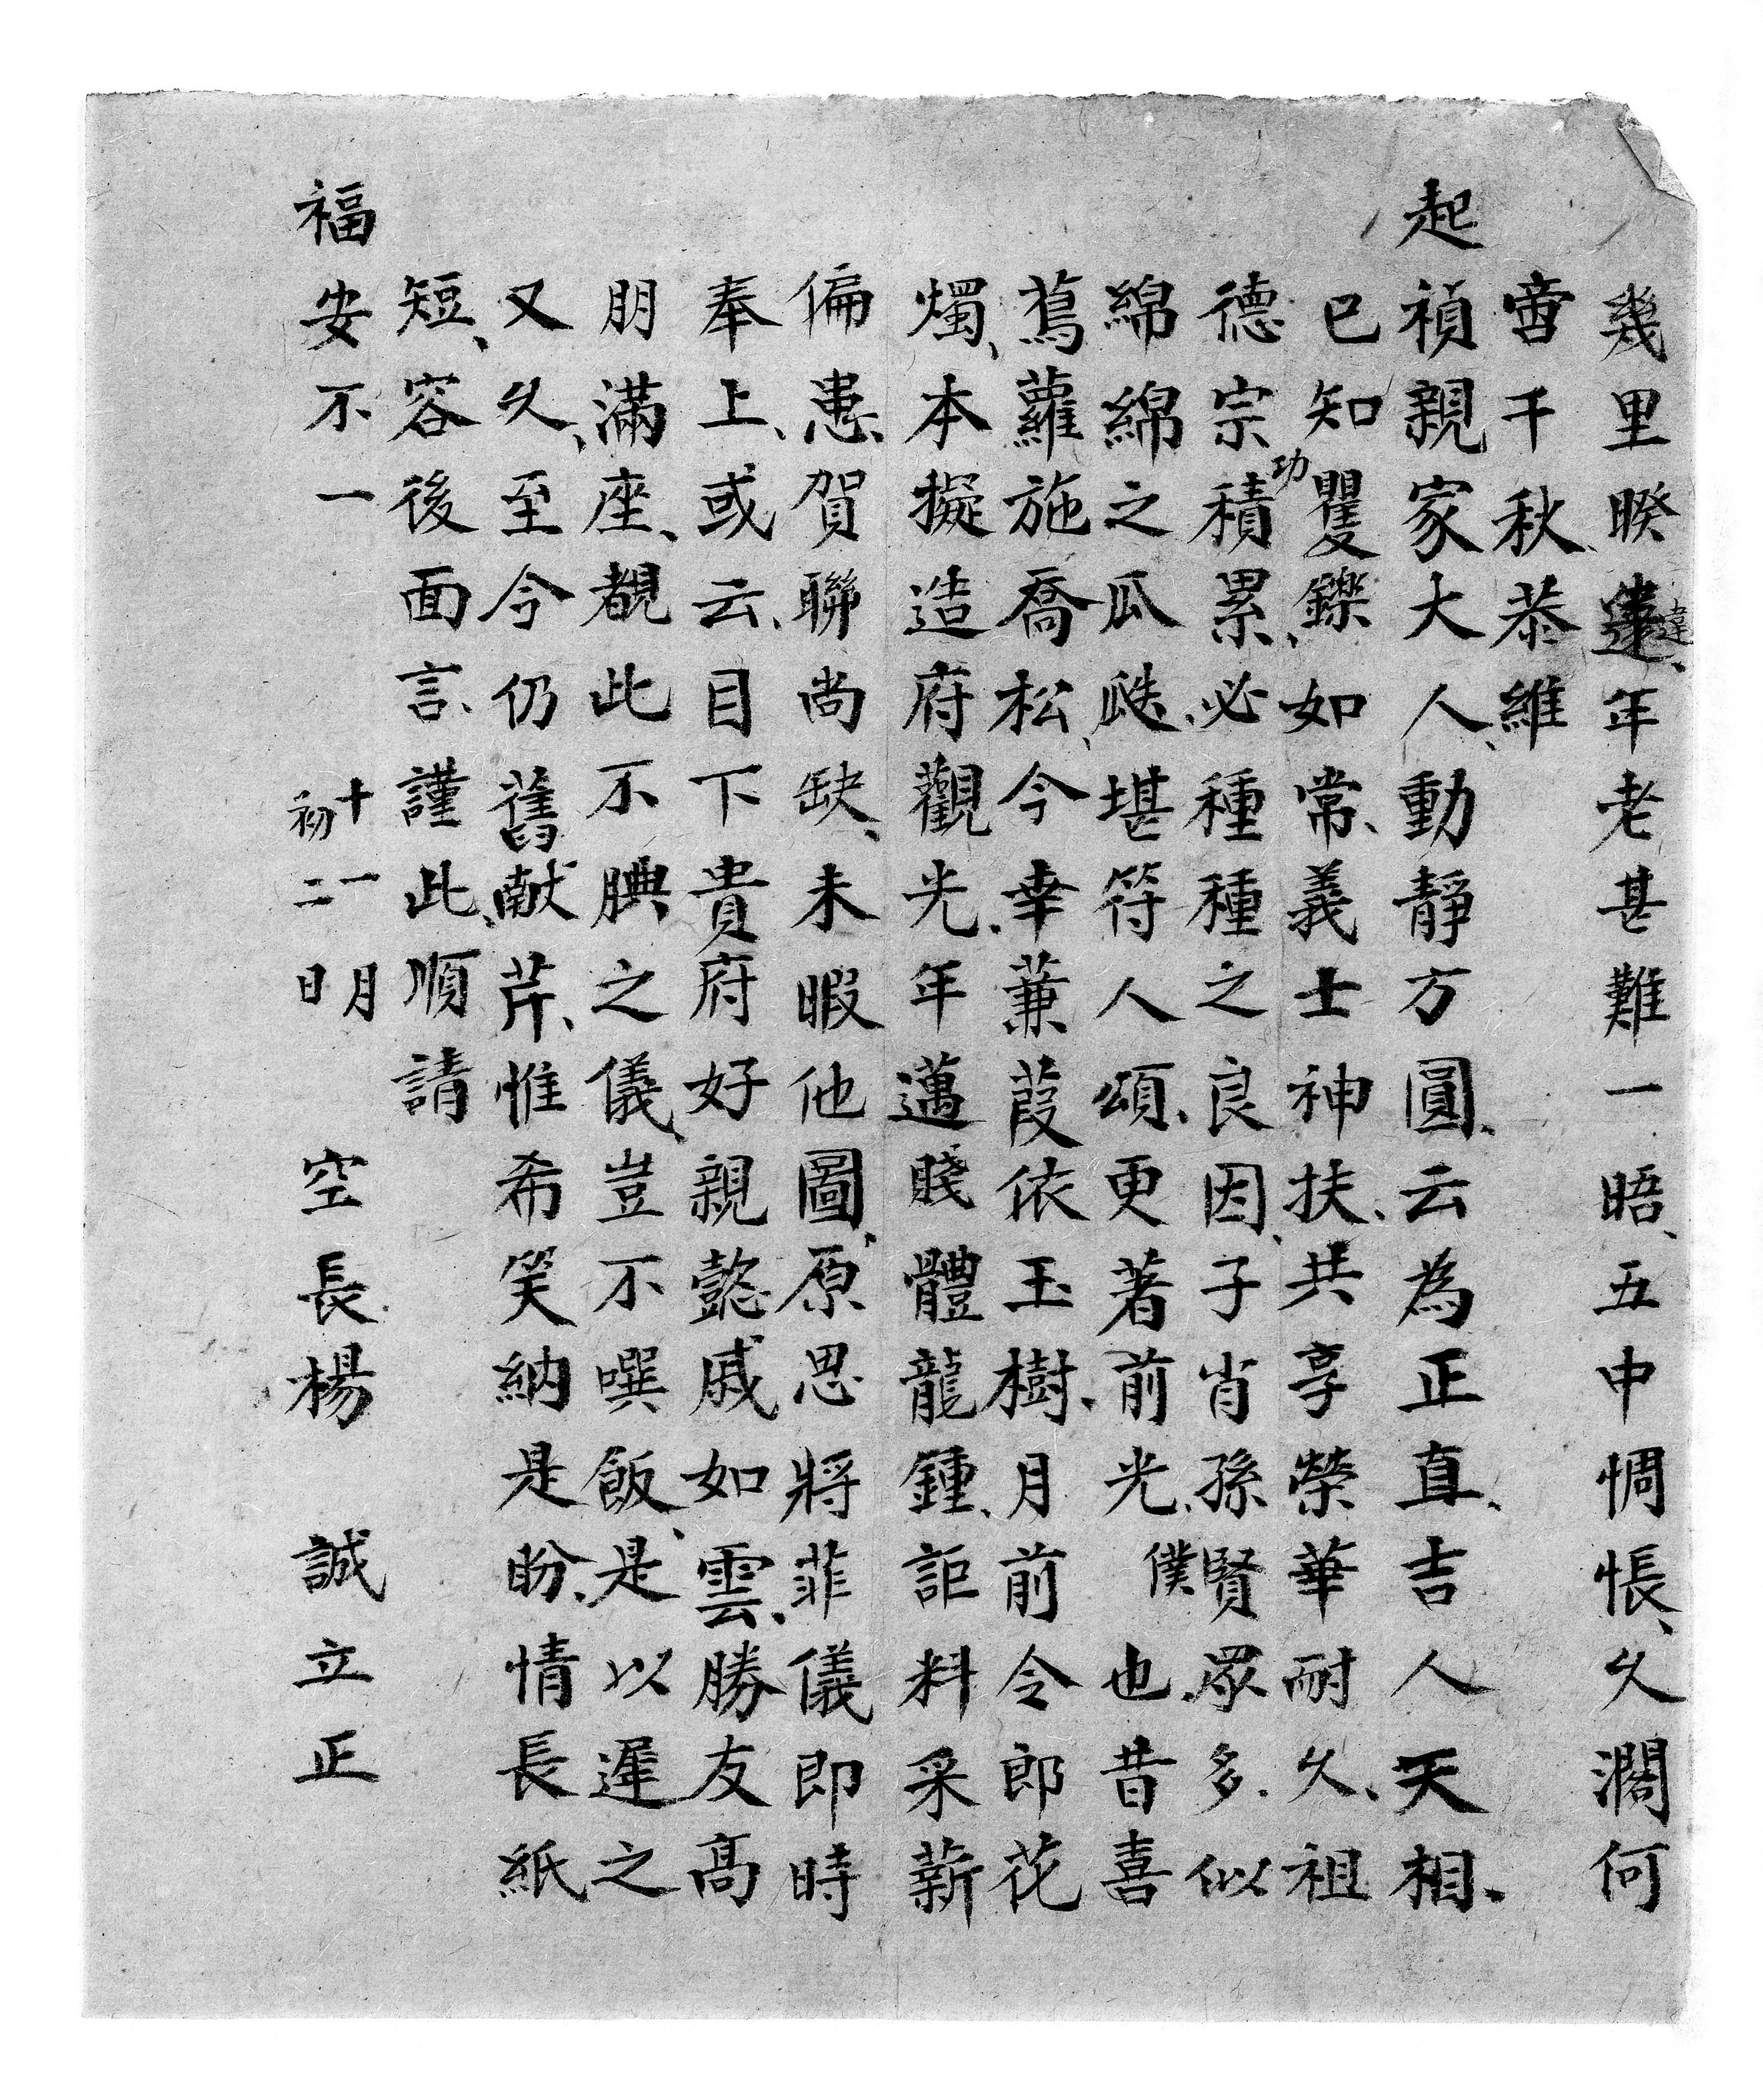 幾里暌違、年老甚難一晤、五中惆悵、久濶何
啻千秋、恭維
起禎親家大人、動靜方圓、云為正直、吉人天相、
已知矍鑠如常、義士神扶、共享榮華耐久、祖
德宗功積累、必種種之良因、子肖孫賢眾多、似
綿綿之瓜瓞、堪符人頌、更著前光、僕也、昔喜
蔦蘿施喬松、今幸蒹葭依玉樹、月前令郎花
燭、本擬造府觀光、年邁賤體龍鍾、詎料采薪
偏患、賀聯尚缺、未暇他圖、原思將菲儀即時
奉上、或云、目下貴府好親懿戚如雲、勝友高
朋滿座、覩此不腆之儀、豈不噀飯、是以遲之
又久、至今仍舊献芹、惟希笑納是盼、情長紙
短、容後面言、謹此、順請
福安不一
十一月
初二日
明
空長楊 誠立正